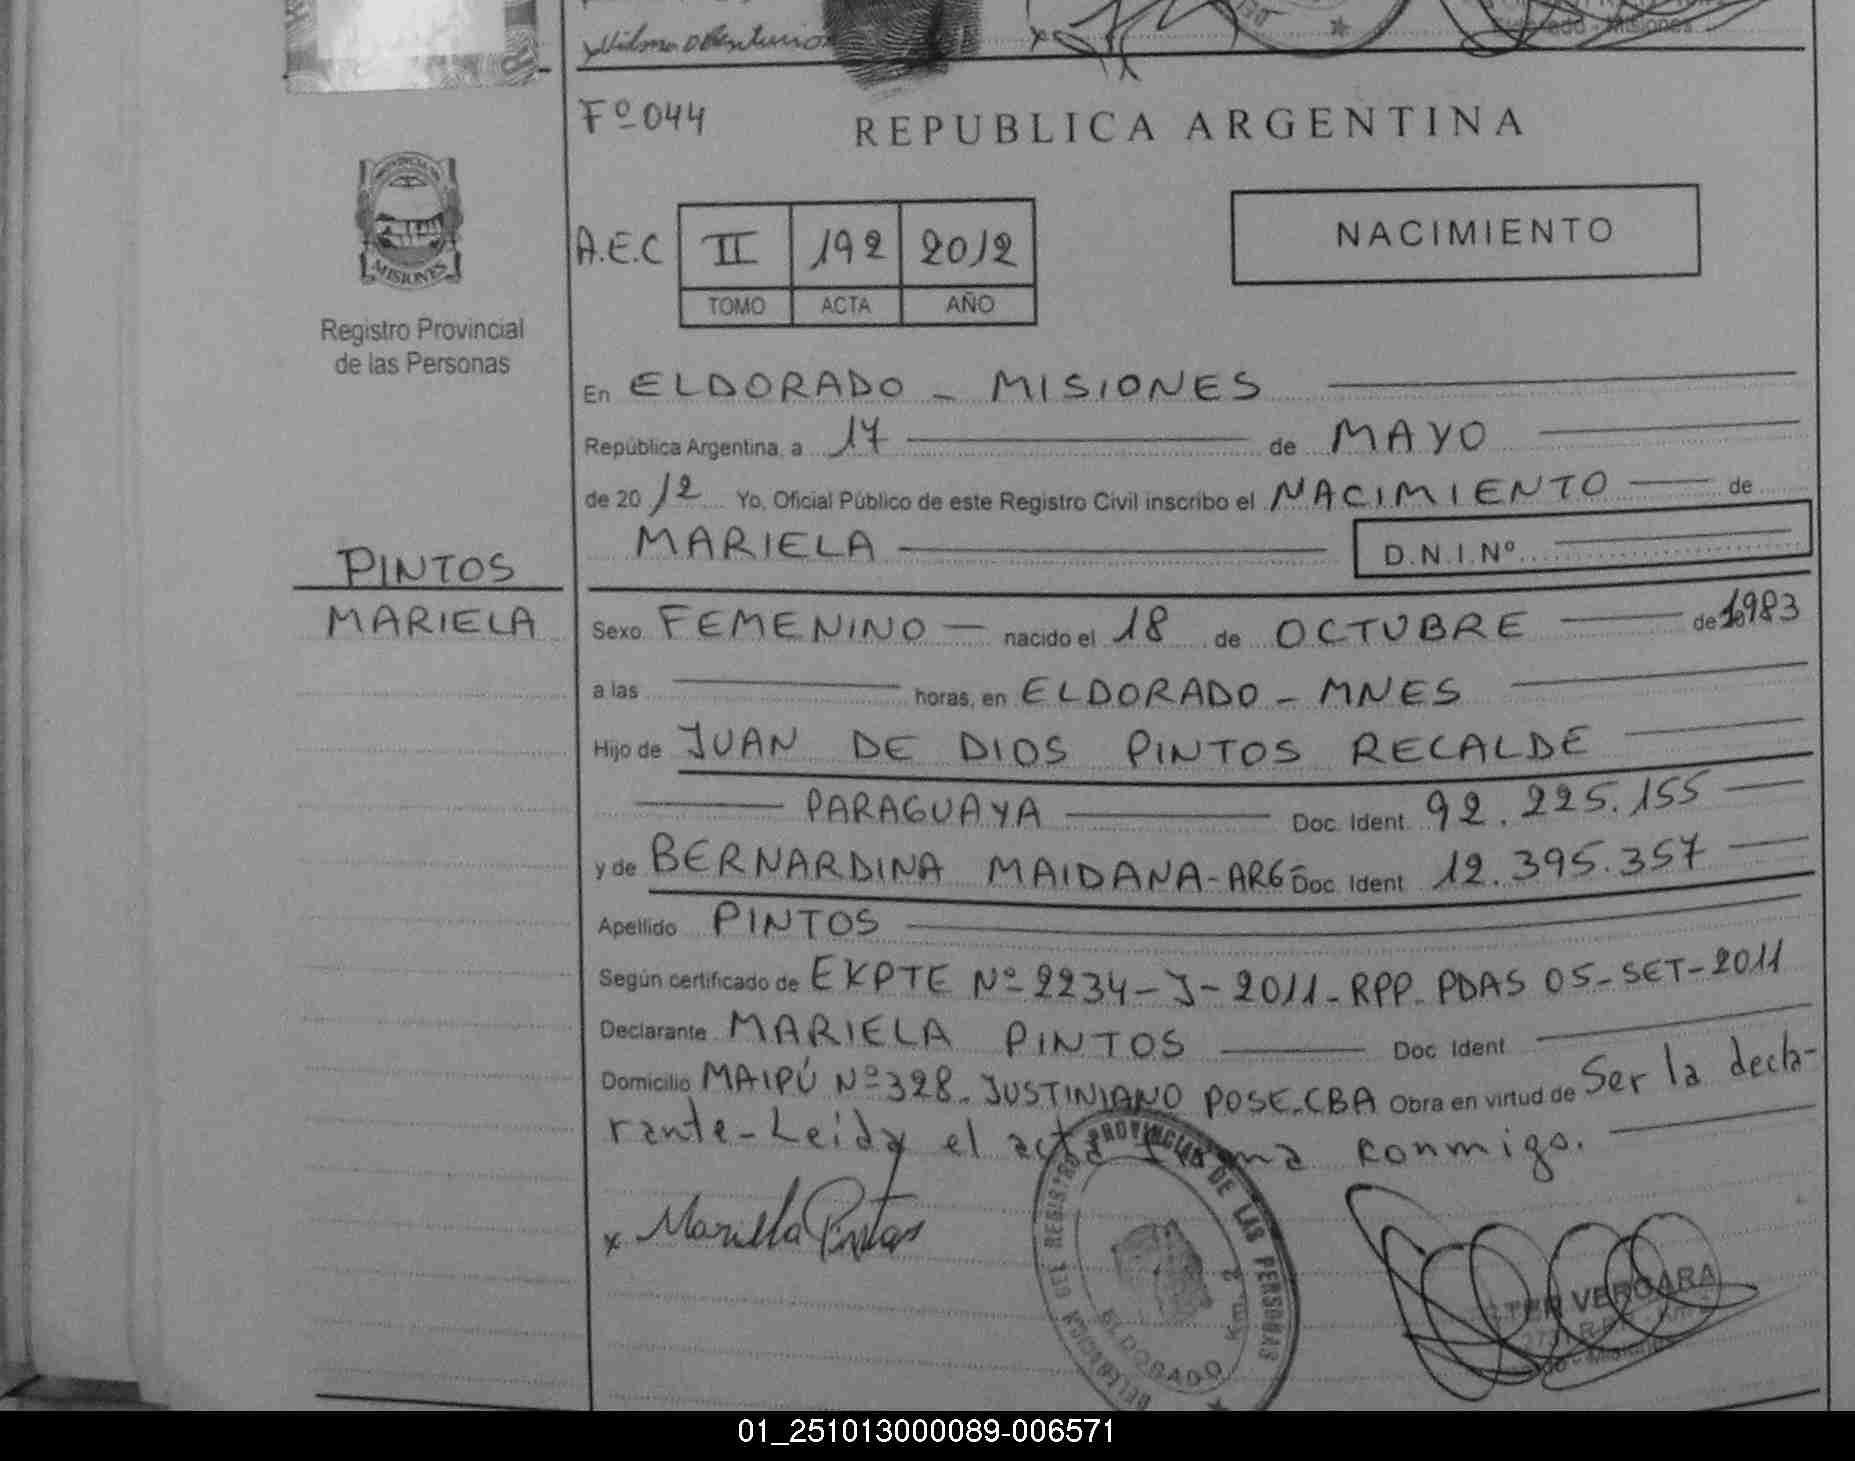 Fº 044
REPUBLICA ARGENTINA
NACIMIENTO
A.E.C II 192 2012
TOMO ACTA AÑO
MISIONES
Registro Provincial
de las Personas
En ELDORADO - MISIONES
República Argentina, a 17 de MAYO
de 2012 Yo, Oficial Público de este Registro Civil inscribo el NACIMIENTO de
MARIELA D.N.I.Nº
PINTOS
MARIELA
Sexo FEMENINO nacido el 18 de OCTUBRE de 1983
a las horas, en ELDORADO - MNES
Hijo de JUAN DE DIOS PINTOS RECALDE
PARAGUAYA Doc. Ident. 92.225.155
y de BERNARDINA MAIDANA-ARG Doc. Ident. 12.395.357
Apellido PINTOS
Según certificado de EXPTE Nº 2234-J-2011-RPP-PDAS 05-SET-2011
Declarante MARIELA PINTOS Doc. Ident.
Domicilio MAIPÚ Nº 328. JUSTINIANO POSE-CBA Obra en virtud de Ser la decla-
rante-Leida el acta firma conmigo.
x Mariela Pintos
PROVINCIAL DE LAS PERSONAS
ELDORADO Km. 2
VERGARA
01_251013000089-006571